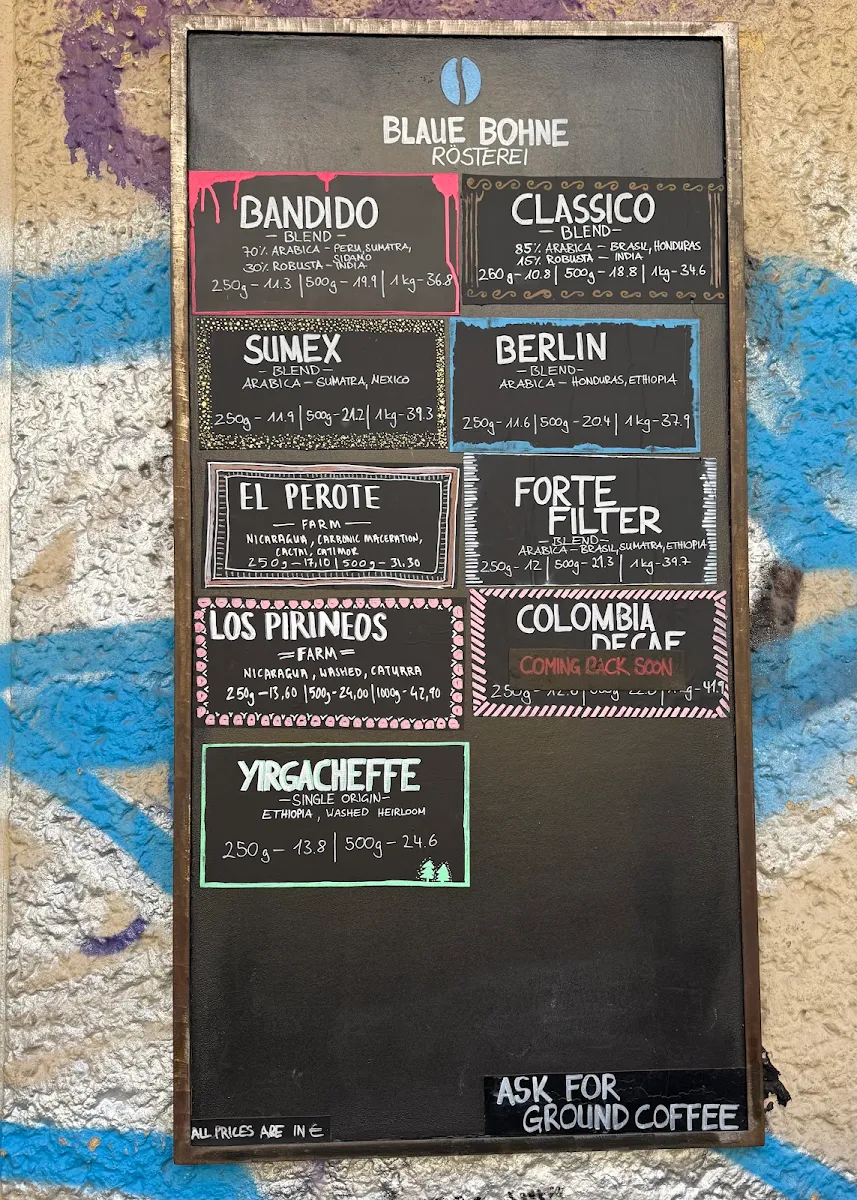 BLAUE BOHNE
RÖSTEREI
BANDIDO
– BLEND –
70% ARABICA – PERU, SUMATRA,
SIDAMO
30% ROBUSTA – INDIA
250g – 11.3 | 500g – 19.9 | 1 kg – 36.8
CLASSICO
– BLEND –
85% ARABICA – BRASIL, HONDURAS
15% ROBUSTA – INDIA
250g – 10.8 | 500g – 18.8 | 1kg – 34.6
SUMEX
– BLEND –
ARABICA – SUMATRA, MEXICO
250g – 11.9 | 500g – 21.2 | 1 kg – 39.3
BERLIN
– BLEND –
ARABICA – HONDURAS, ETHIOPIA
250g – 11.6 | 500g – 20.4 | 1 kg – 37.9
EL PEROTE
— FARM —
NICARAGUA, CARBONIC MACERATION,
CATIMOR
250g – 17,10 | 500g – 31.30
FORTE
FILTER
– BLEND –
ARABICA – BRASIL, SUMATRA, ETHIOPIA
250g – 12 | 500g – 21.3 | 1kg – 39.7
LOS PIRINEOS
= FARM =
NICARAGUA, WASHED, CATUARA
250g – 13,60 | 500g – 24,00 | 1000g – 42,90
COLOMBIA
DECAF
COMING BACK SOON
250g – 41.9
YIRGACHEFFE
– SINGLE ORIGIN –
ETHIOPIA, WASHED HEIRLOOM
250g – 13.8 | 500g – 24.6
ALL PRICES ARE IN €
ASK FOR
GROUND COFFEE